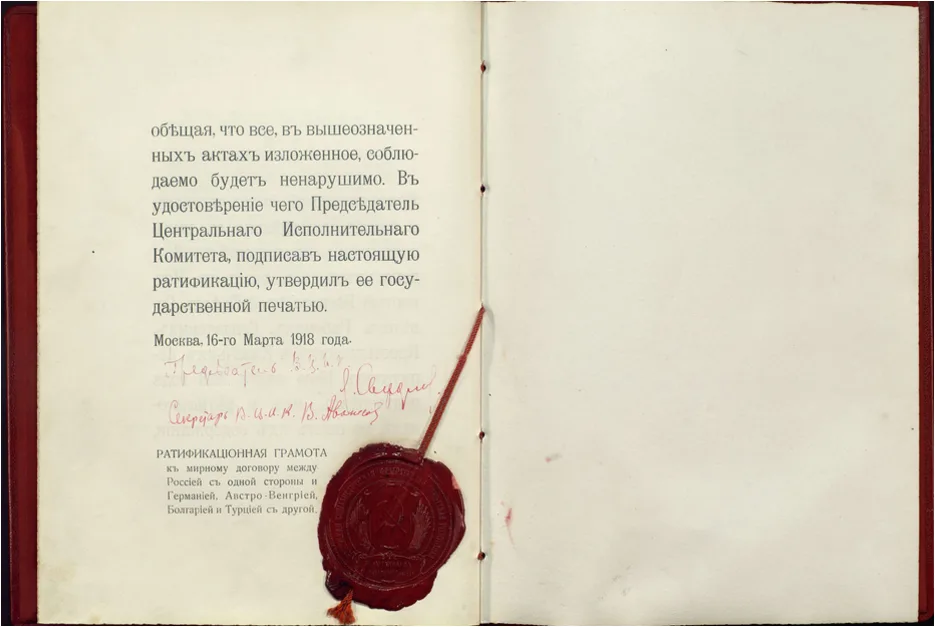 обѣщая, что все, въ вышеозначен-
ныхъ актахъ изложенное, соблю-
даемо будетъ ненарушимо. Въ
удостовѣреніе чего Предсѣдатель
Центральнаго Исполнительнаго
Комитета, подписавъ настоящую
ратификацію, утвердилъ ее госу-
дарственной печатью.
Москва, 16-го Марта 1918 года.
Председатель В.Ц.И.К.
Я. Свердлов
Секретарь В.Ц.И.К. В. Аванесов
РАТИФИКАЦІОННАЯ ГРАМОТА
къ мирному договору между
Россіей съ одной стороны и
Германіей, Австро-Венгріей,
Болгаріей и Турціей съ другой.